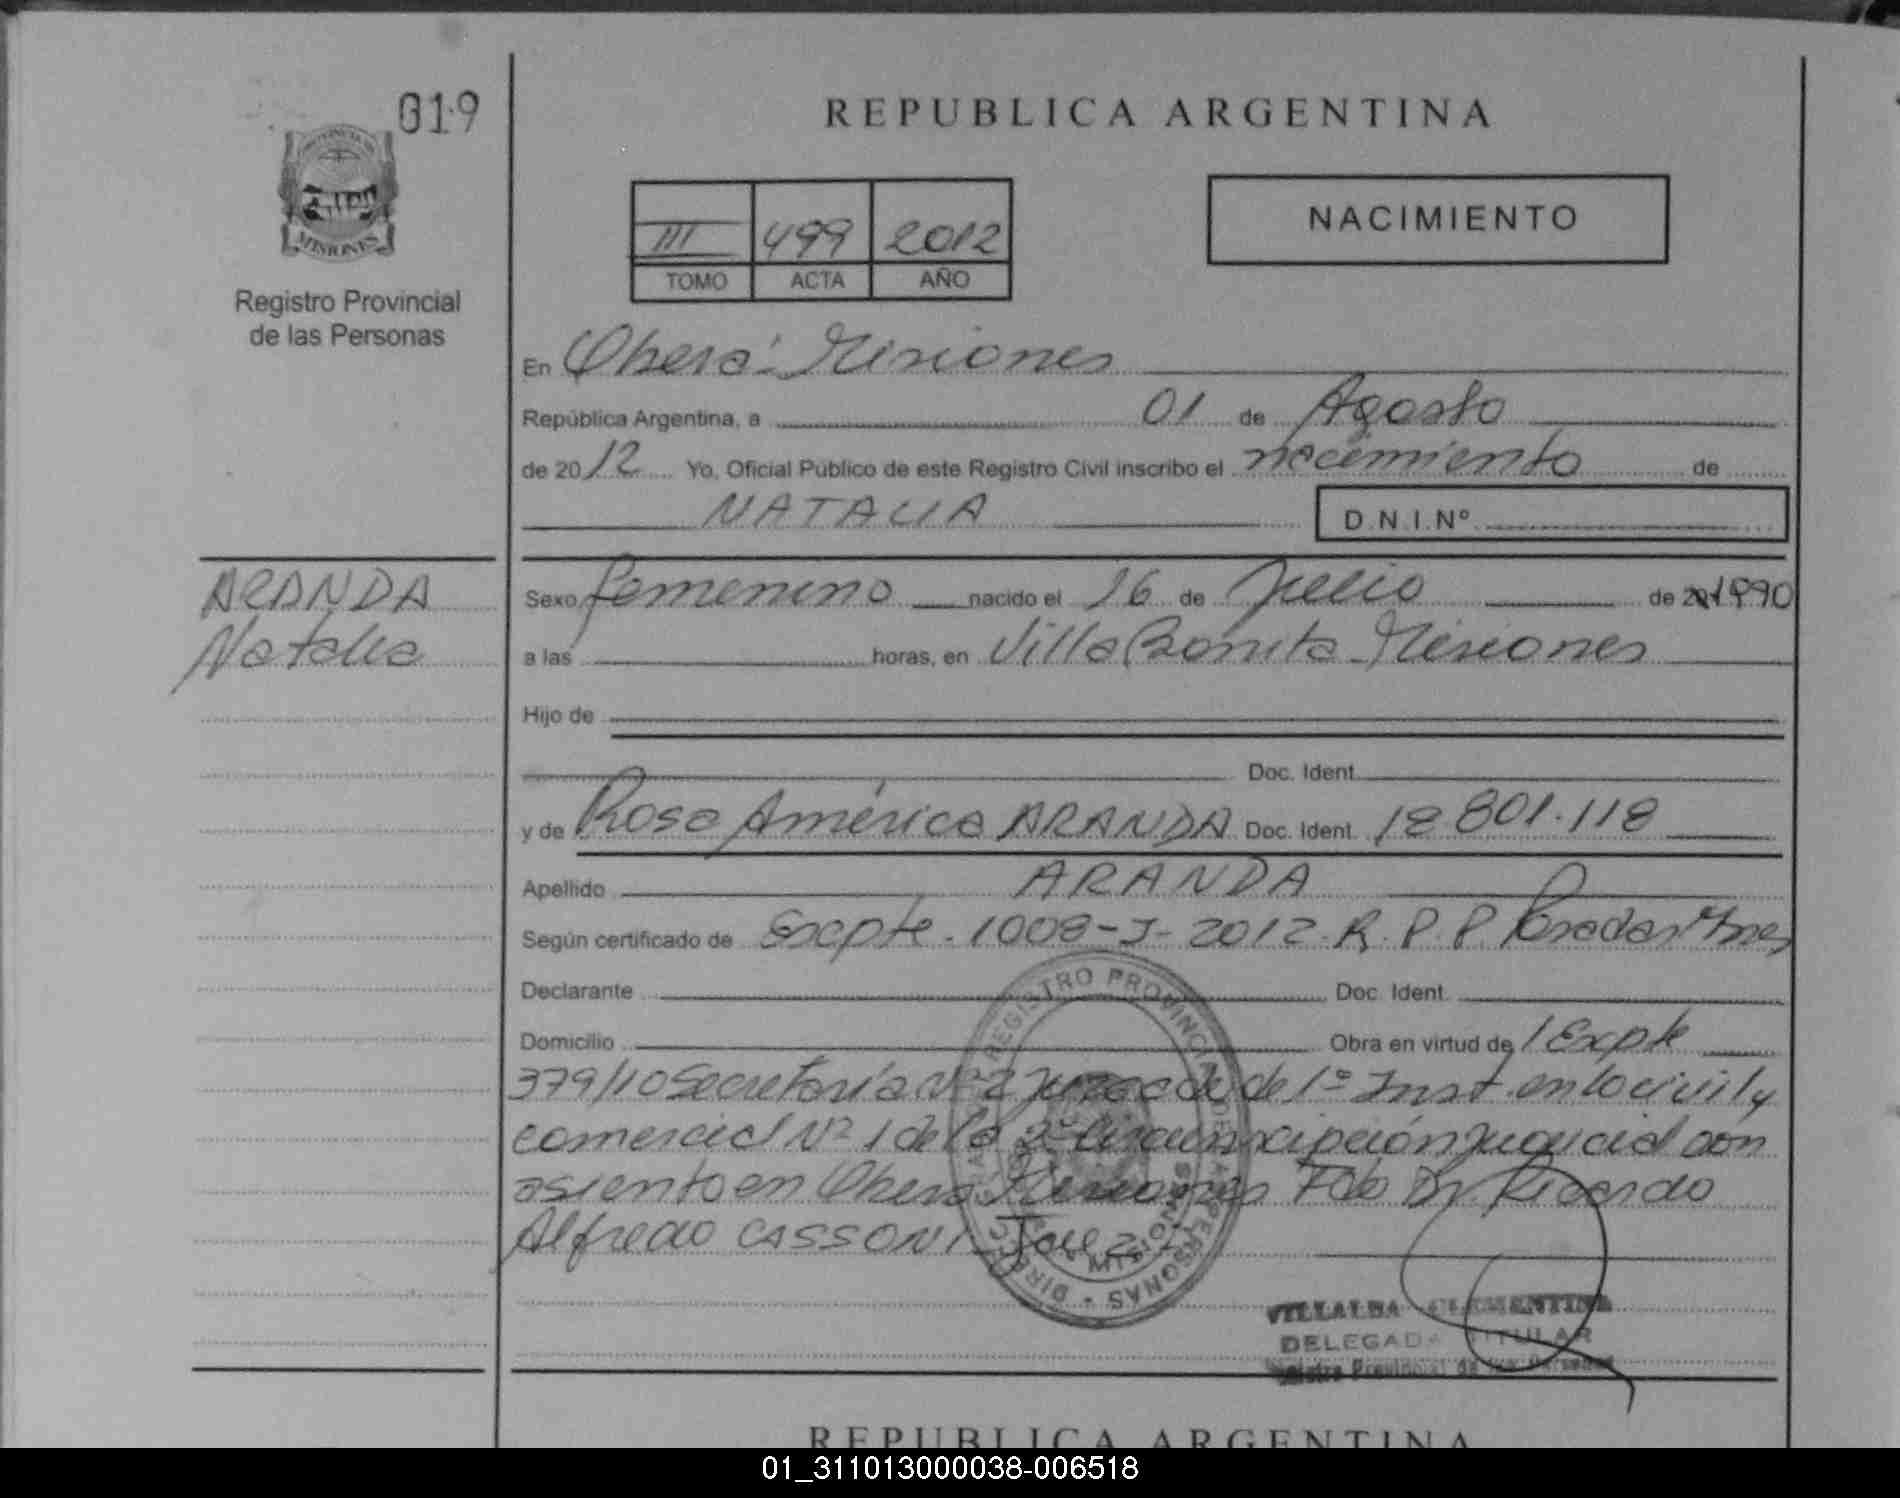 019
PROVINCIA DE
MISIONES
Registro Provincial
de las Personas
REPUBLICA ARGENTINA
III 499 2012
TOMO ACTA AÑO
NACIMIENTO
En Oberá - Misiones
República Argentina, a 01 de Agosto
de 2012 Yo, Oficial Público de este Registro Civil inscribo el nacimiento de
NATALIA D.N.I.Nº
ARANDA
Natalia
Sexo femenino nacido el 16 de Julio de 1990
a las horas, en Villa Bonita - Misiones
Hijo de
Doc. Ident.
y de Rosa América ARANDA Doc. Ident. 18 801.118
Apellido ARANDA
Según certificado de Expte. 1008-J-2012. R.P.P. Posadas Mnes
Declarante Doc. Ident.
Domicilio Obra en virtud de Expte
379/10 Secretaría Nº 2 Juzgado de 1º Inst. en lo civil y
comercial Nº 1 de la 2º Circunscripción Judicial con
asiento en Oberá Misiones Fdo Dr. Ricardo
Alfredo CASSONI - Juez -
REGISTRO PROVINCIAL DE LAS PERSONAS
MISIONES
VILLALBA CLEMENTINA
DELEGADA TITULAR
Registro Provincial de las Personas
REPUBLICA ARGENTINA
01_311013000038-006518